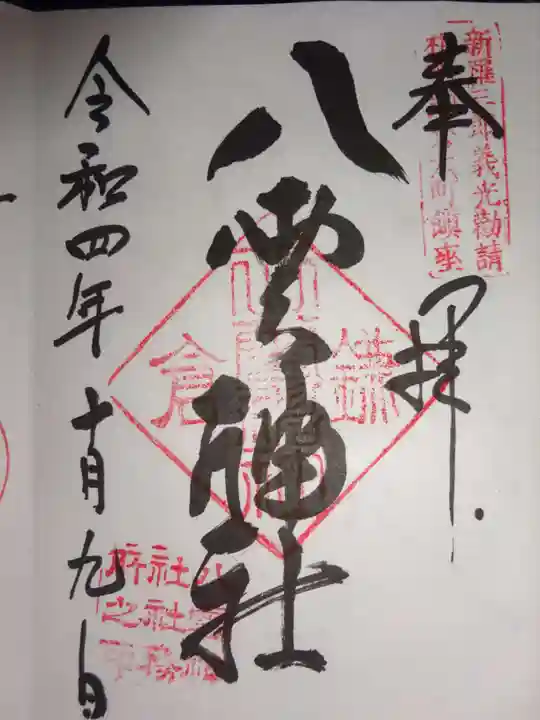 新羅三郎義光勧請
奉拝
八雲神社
鎌倉
令和四年十月九日